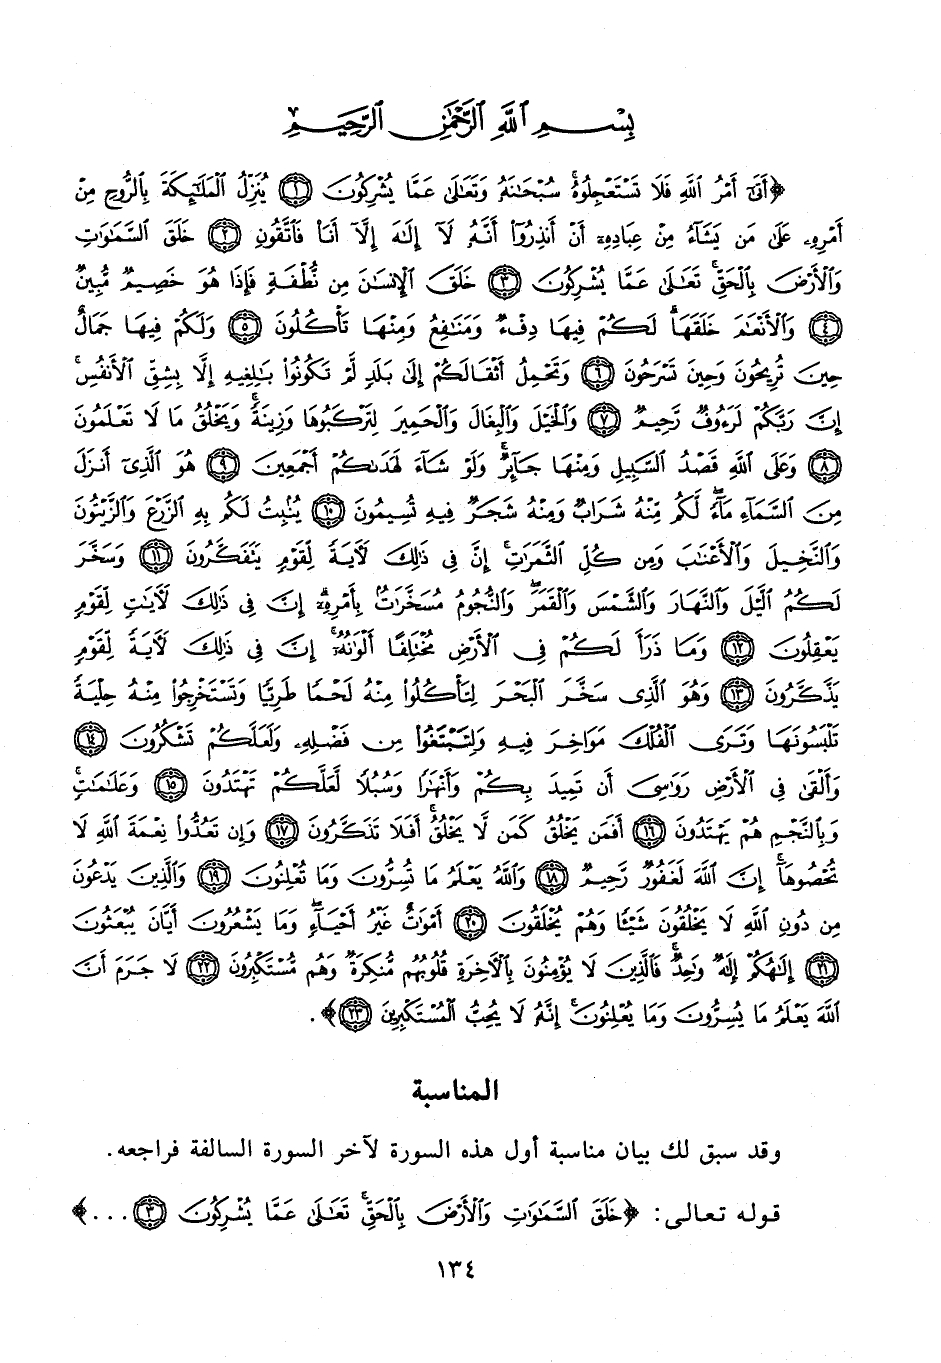 بِسْمِ ٱللَّهِ ٱلرَّحْمَٰنِ ٱلرَّحِيمِ
﴿أَتَىٰٓ أَمْرُ ٱللَّهِ فَلَا تَسْتَعْجِلُوهُ ۚ سُبْحَٰنَهُۥ وَتَعَٰلَىٰ عَمَّا يُشْرِكُونَ ﴿١﴾ يُنَزِّلُ ٱلْمَلَٰٓئِكَةَ بِٱلرُّوحِ مِنْ
أَمْرِهِۦ عَلَىٰ مَن يَشَآءُ مِنْ عِبَادِهِۦٓ أَنْ أَنذِرُوٓا۟ أَنَّهُۥ لَآ إِلَٰهَ إِلَّآ أَنَا۠ فَٱتَّقُونِ ﴿٢﴾ خَلَقَ ٱلسَّمَٰوَٰتِ
وَٱلْأَرْضَ بِٱلْحَقِّ ۚ تَعَٰلَىٰ عَمَّا يُشْرِكُونَ ﴿٣﴾ خَلَقَ ٱلْإِنسَٰنَ مِن نُّطْفَةٍ فَإِذَا هُوَ خَصِيمٌ مُّبِينٌ
﴿٤﴾ وَٱلْأَنْعَٰمَ خَلَقَهَا ۗ لَكُمْ فِيهَا دِفْءٌ وَمَنَٰفِعُ وَمِنْهَا تَأْكُلُونَ ﴿٥﴾ وَلَكُمْ فِيهَا جَمَالٌ
حِينَ تُرِيحُونَ وَحِينَ تَسْرَحُونَ ﴿٦﴾ وَتَحْمِلُ أَثْقَالَكُمْ إِلَىٰ بَلَدٍ لَّمْ تَكُونُوا۟ بَٰلِغِيهِ إِلَّا بِشِقِّ ٱلْأَنفُسِ ۚ
إِنَّ رَبَّكُمْ لَرَءُوفٌ رَّحِيمٌ ﴿٧﴾ وَٱلْخَيْلَ وَٱلْبِغَالَ وَٱلْحَمِيرَ لِتَرْكَبُوهَا وَزِينَةً ۚ وَيَخْلُقُ مَا لَا تَعْلَمُونَ
﴿٨﴾ وَعَلَى ٱللَّهِ قَصْدُ ٱلسَّبِيلِ وَمِنْهَا جَآئِرٌ ۚ وَلَوْ شَآءَ لَهَدَىٰكُمْ أَجْمَعِينَ ﴿٩﴾ هُوَ ٱلَّذِىٓ أَنزَلَ
مِنَ ٱلسَّمَآءِ مَآءً ۖ لَّكُم مِّنْهُ شَرَابٌ وَمِنْهُ شَجَرٌ فِيهِ تُسِيمُونَ ﴿١٠﴾ يُنۢبِتُ لَكُم بِهِ ٱلزَّرْعَ وَٱلزَّيْتُونَ
وَٱلنَّخِيلَ وَٱلْأَعْنَٰبَ وَمِن كُلِّ ٱلثَّمَرَٰتِ ۗ إِنَّ فِى ذَٰلِكَ لَءَايَةً لِّقَوْمٍ يَتَفَكَّرُونَ ﴿١١﴾ وَسَخَّرَ
لَكُمُ ٱلَّيْلَ وَٱلنَّهَارَ وَٱلشَّمْسَ وَٱلْقَمَرَ ۖ وَٱلنُّجُومُ مُسَخَّرَٰتٌۢ بِأَمْرِهِۦٓ ۗ إِنَّ فِى ذَٰلِكَ لَءَايَٰتٍ لِّقَوْمٍ
يَعْقِلُونَ ﴿١٢﴾ وَمَا ذَرَأَ لَكُمْ فِى ٱلْأَرْضِ مُخْتَلِفًا أَلْوَٰنُهُۥٓ ۗ إِنَّ فِى ذَٰلِكَ لَءَايَةً لِّقَوْمٍ
يَذَّكَّرُونَ ﴿١٣﴾ وَهُوَ ٱلَّذِى سَخَّرَ ٱلْبَحْرَ لِتَأْكُلُوا۟ مِنْهُ لَحْمًا طَرِيًّا وَتَسْتَخْرِجُوا۟ مِنْهُ حِلْيَةً
تَلْبَسُونَهَا وَتَرَى ٱلْفُلْكَ مَوَاخِرَ فِيهِ وَلِتَبْتَغُوا۟ مِن فَضْلِهِۦ وَلَعَلَّكُمْ تَشْكُرُونَ ﴿١٤﴾
وَأَلْقَىٰ فِى ٱلْأَرْضِ رَوَٰسِىَ أَن تَمِيدَ بِكُمْ وَأَنْهَٰرًا وَسُبُلًا لَّعَلَّكُمْ تَهْتَدُونَ ﴿١٥﴾ وَعَلَٰمَٰتٍ ۚ
وَبِٱلنَّجْمِ هُمْ يَهْتَدُونَ ﴿١٦﴾ أَفَمَن يَخْلُقُ كَمَن لَّا يَخْلُقُ ۗ أَفَلَا تَذَكَّرُونَ ﴿١٧﴾ وَإِن تَعُدُّوا۟ نِعْمَةَ ٱللَّهِ لَا
تُحْصُوهَآ ۗ إِنَّ ٱللَّهَ لَغَفُورٌ رَّحِيمٌ ﴿١٨﴾ وَٱللَّهُ يَعْلَمُ مَا تُسِرُّونَ وَمَا تُعْلِنُونَ ﴿١٩﴾ وَٱلَّذِينَ يَدْعُونَ
مِن دُونِ ٱللَّهِ لَا يَخْلُقُونَ شَيْـًٔا وَهُمْ يُخْلَقُونَ ﴿٢٠﴾ أَمْوَٰتٌ غَيْرُ أَحْيَآءٍ ۖ وَمَا يَشْعُرُونَ أَيَّانَ يُبْعَثُونَ
﴿٢١﴾ إِلَٰهُكُمْ إِلَٰهٌ وَٰحِدٌ ۚ فَٱلَّذِينَ لَا يُؤْمِنُونَ بِٱلْءَاخِرَةِ قُلُوبُهُم مُّنكِرَةٌ وَهُم مُّسْتَكْبِرُونَ ﴿٢٢﴾ لَا جَرَمَ أَنَّ
ٱللَّهَ يَعْلَمُ مَا يُسِرُّونَ وَمَا يُعْلِنُونَ ۚ إِنَّهُۥ لَا يُحِبُّ ٱلْمُسْتَكْبِرِينَ ﴿٢٣﴾﴾.
المناسبة
وقد سبق لك بيان مناسبة أول هذه السورة لآخر السورة السالفة فراجعه.
قوله تعالى: ﴿خَلَقَ ٱلسَّمَٰوَٰتِ وَٱلْأَرْضَ بِٱلْحَقِّ ۚ تَعَٰلَىٰ عَمَّا يُشْرِكُونَ ﴿٣﴾...﴾
١٣٤